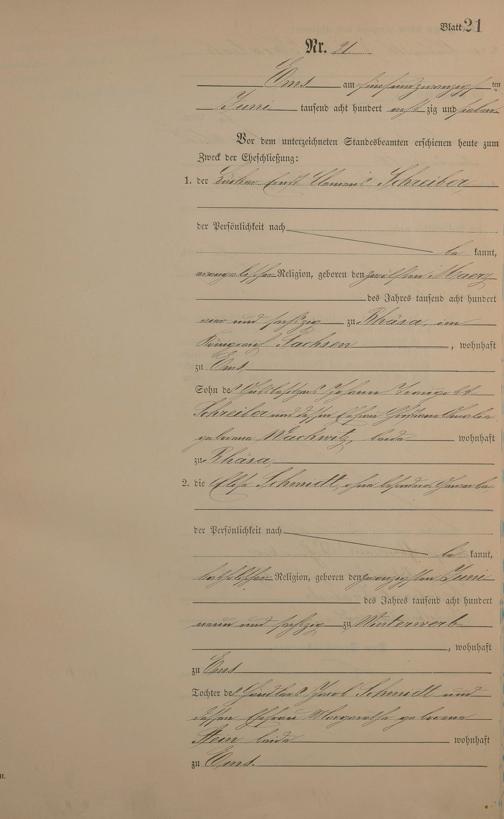 Blatt 21
Nr. 21
Ems am fünfundzwanzig ten
Juni tausend acht hundert acht zig und sieben
Vor dem unterzeichneten Standesbeamten erschienen heute zum
Zweck der Eheschließung:
1. der Ernst Clemens Schreiber
der Persönlichkeit nach
be kannt,
evangelischer Religion, geboren den zwölften Maerz
des Jahres tausend acht hundert
und sechszig zu Rhäsa, im
Königreich Sachsen, wohnhaft
zu Ems
Sohn des Johann Traugott
Schreiber und dessen Ehefrau
geborene Wachwitz, beide wohnhaft
zu Rhäsa
2. die Elise Schmidt, ohne besonderes Gewerbe
der Persönlichkeit nach
be kannt,
katholischer Religion, geboren den zwanzigsten Juni
des Jahres tausend acht hundert
neun und sechszig zu Winterwerb
, wohnhaft
zu Ems
Tochter des Jacob Schmidt und
dessen Ehefrau Margarethe geborene
Stein beide wohnhaft
zu Ems.